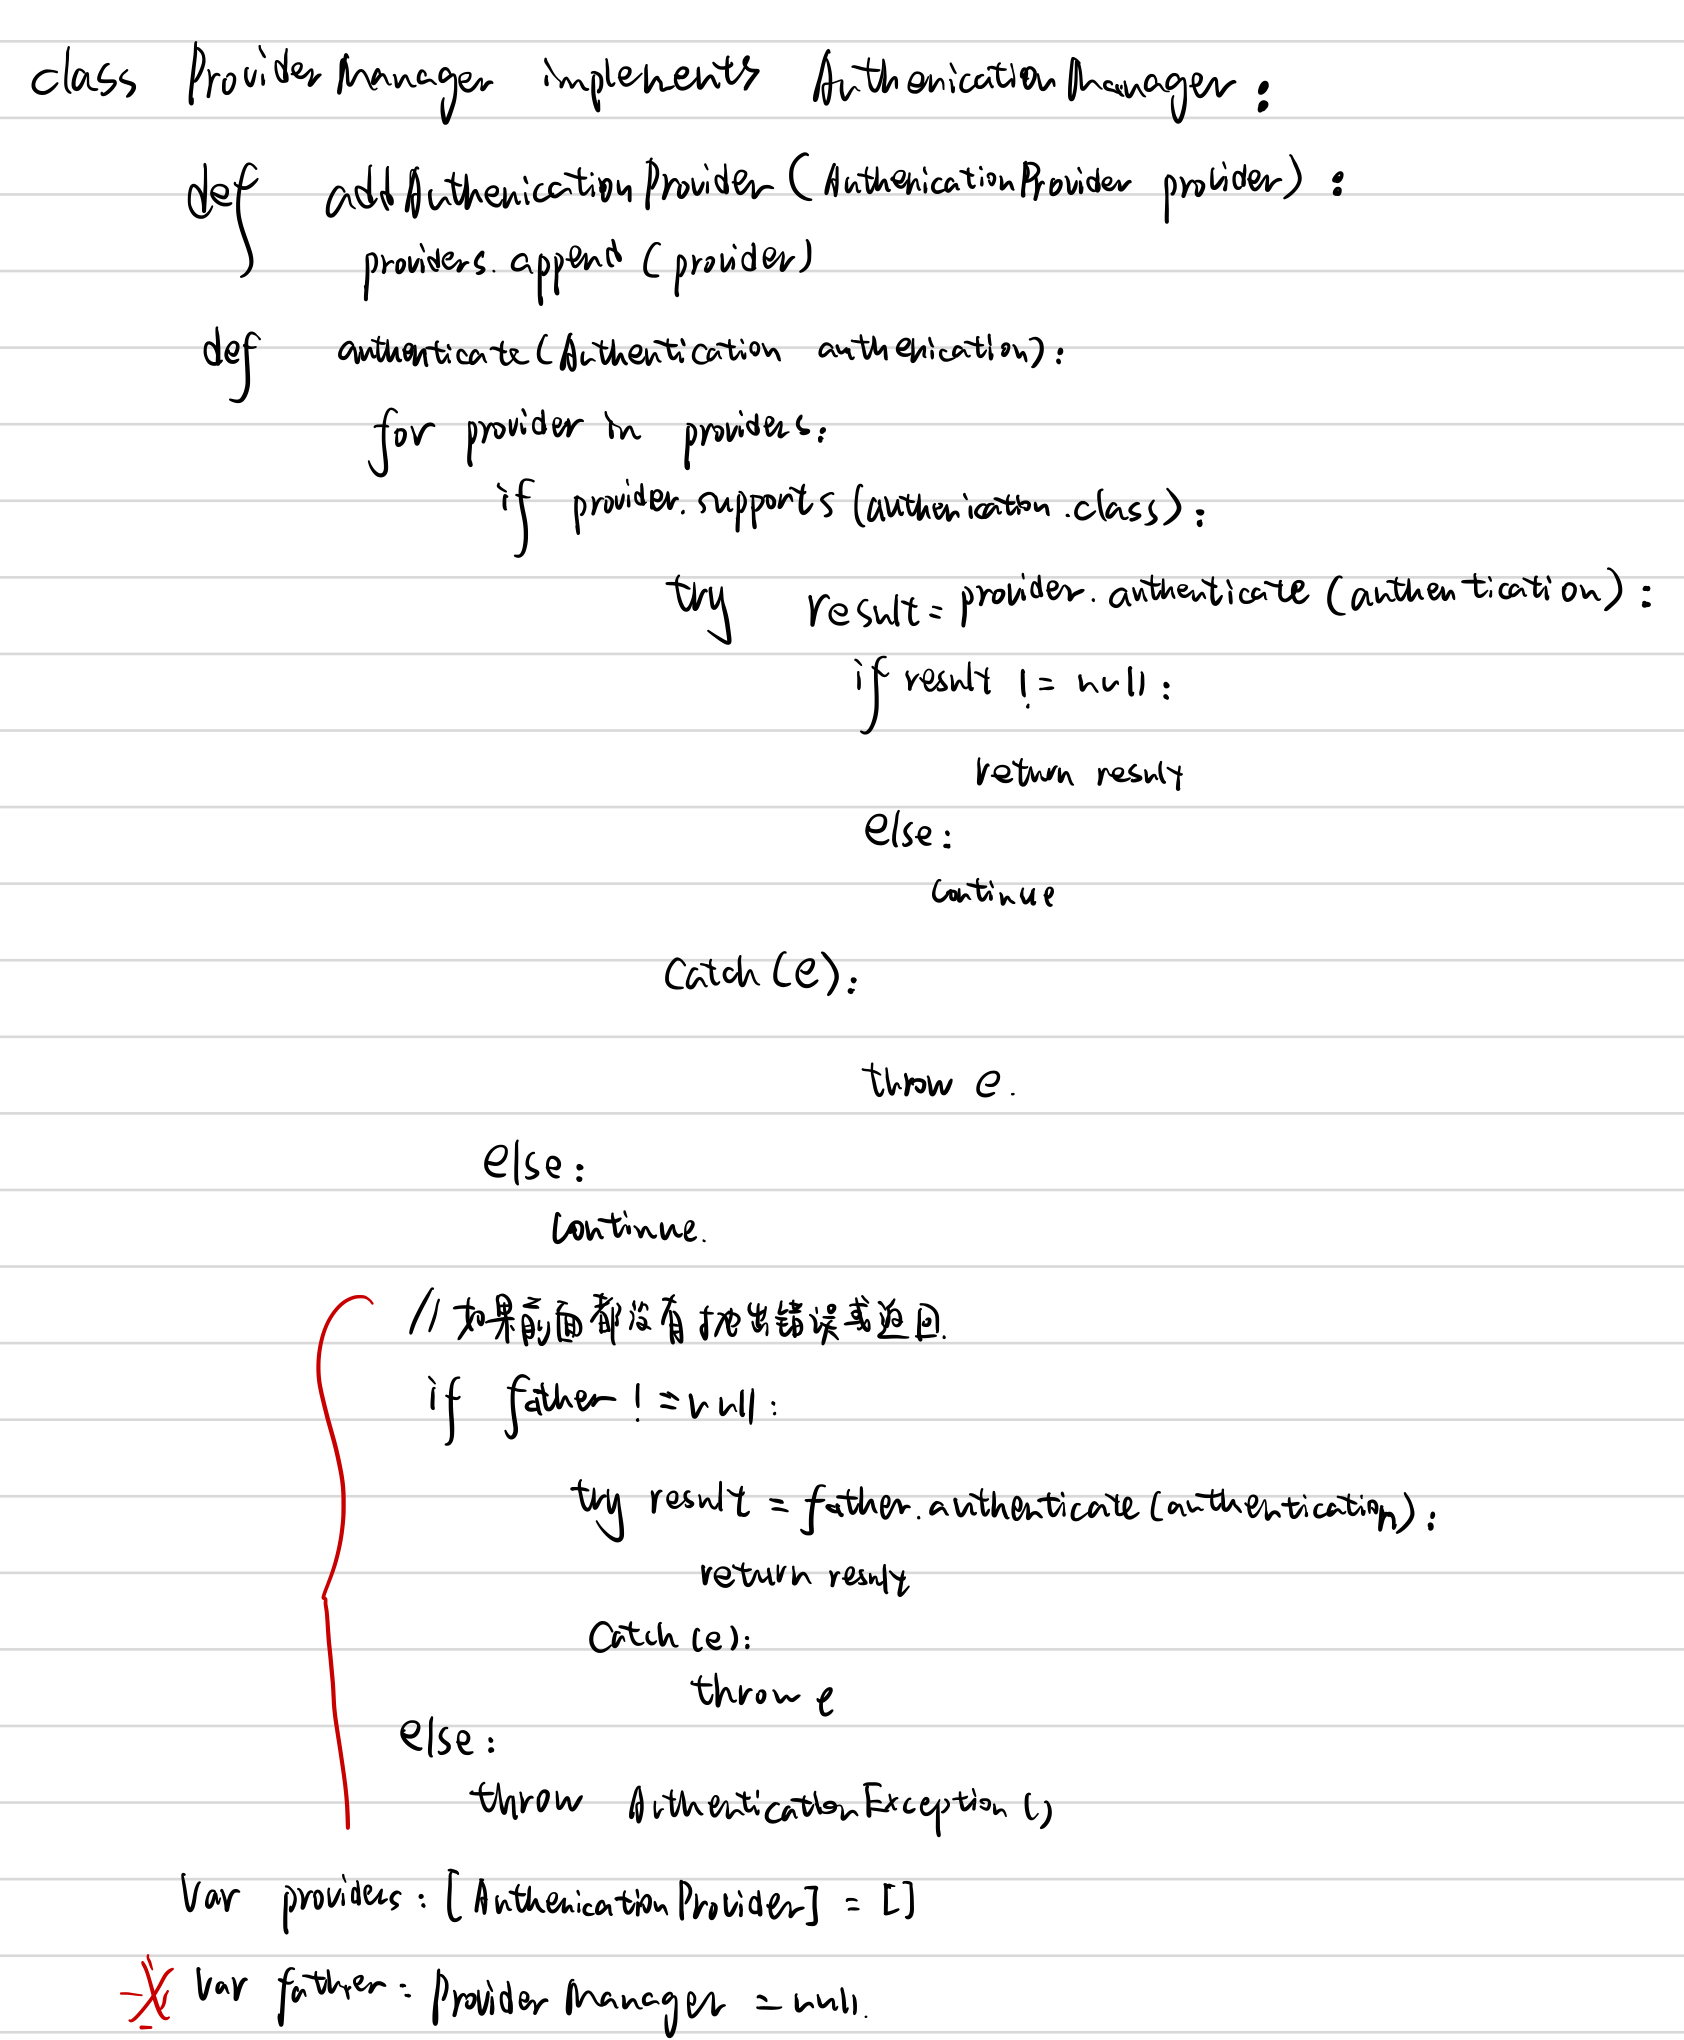 class ProviderManager implements AuthenicationManager:
def addAuthenicationProvider (AuthenicationProvider provider):
providers.append (provider)
def authenticate (Authentication authenication):
for provider in providers:
if provider.supports (authenication.class):
try result = provider.authenticate (authentication):
if result != null:
return result
else:
continue
Catch (e):
throw e.
else:
continue.
// 如果前面都没有抛出错误或返回.
if father != null:
try result = father.authenticate (authentication):
return result
Catch (e):
throw e
else:
throw AuthenticationException ()
Var providers: [AuthenicationProvider] = []
Var father: ProviderManager = null.